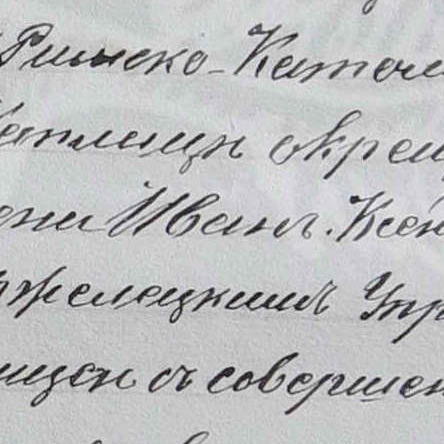 Римско-Катол
Каплицѣ окрещ
ени Иванъ. Ксен
желецкимъ Упр
щенъ съ совершен